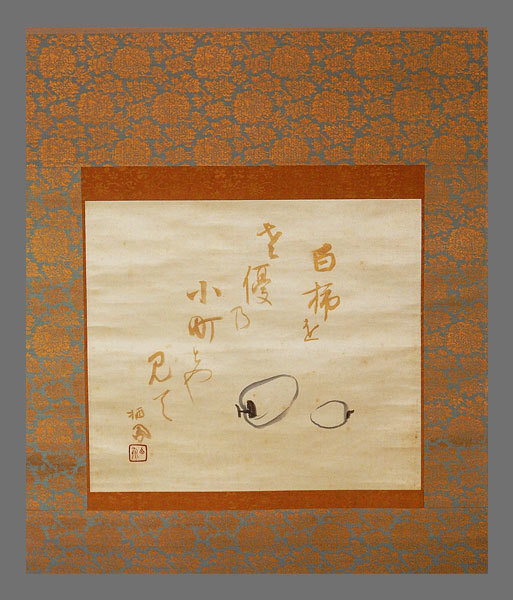 白柿を
老優乃
小町とや
見て
栖鳳